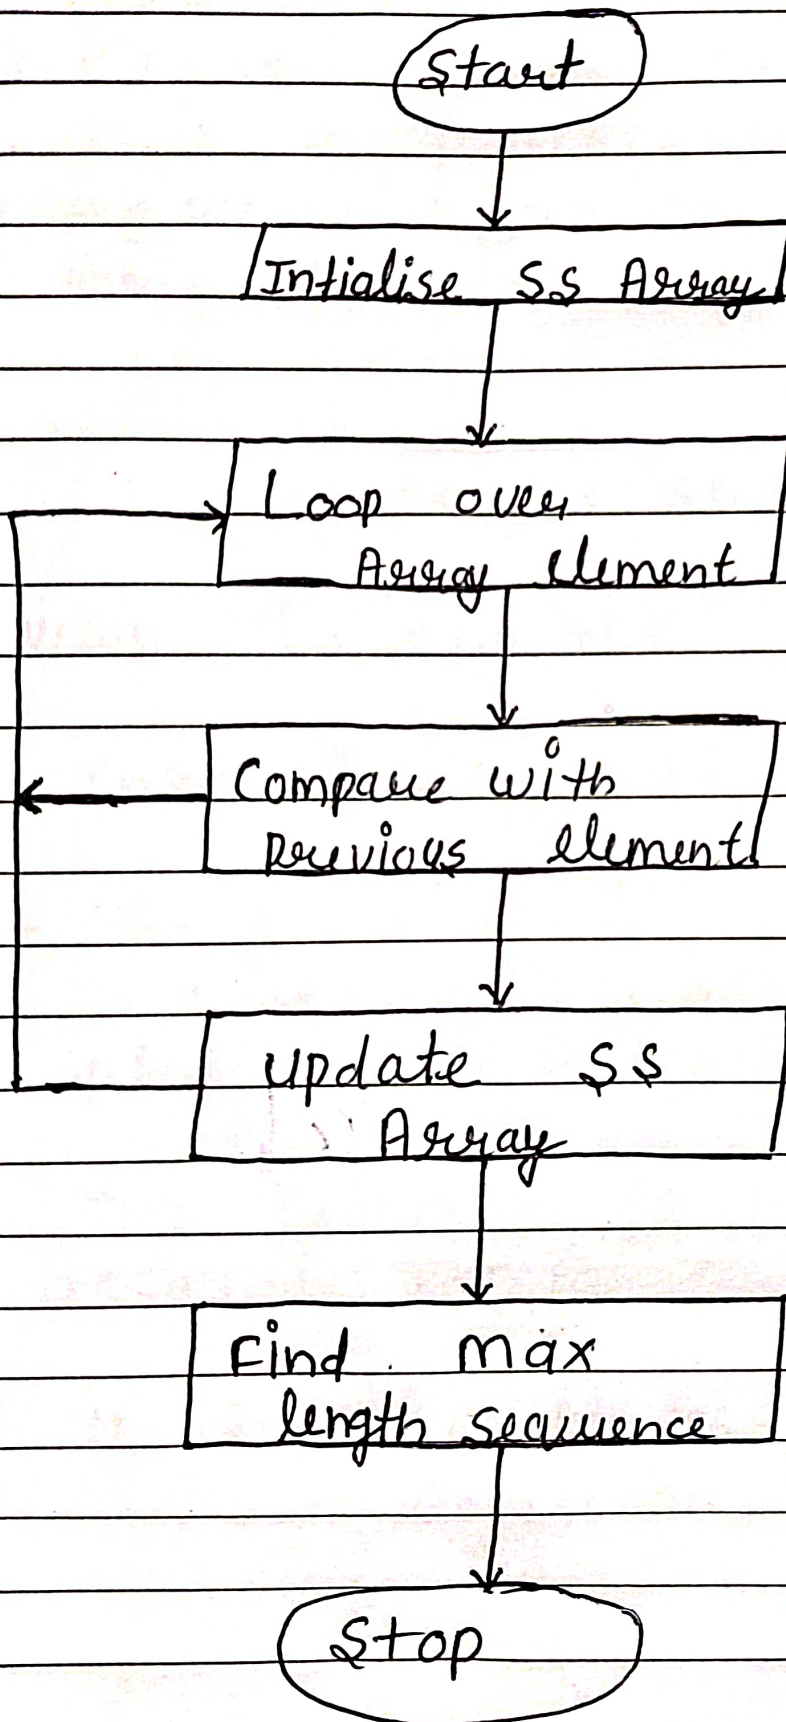 Start
Intialise SS Array
Loop over
Array element
Compare with
previous element
update SS
Array
Find max
length sequence
Stop